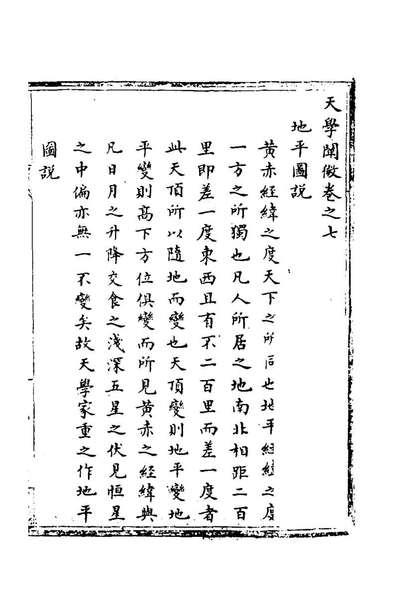 天學闡微卷之七
地平圖說
黃赤經緯之度天下之所同也地平經緯之度
一方之所獨也凡人所居之地南北相距二百
里即差一度東西且有不二百里而差一度者
此天頂所以隨地而變也天頂變則地平變地
平變則高下方位俱變而所見黃赤之經緯與
凡日月之升降交食之淺深五星之伏見恒星
之中偏亦無一不變矣故天學家重之作地平
圖說